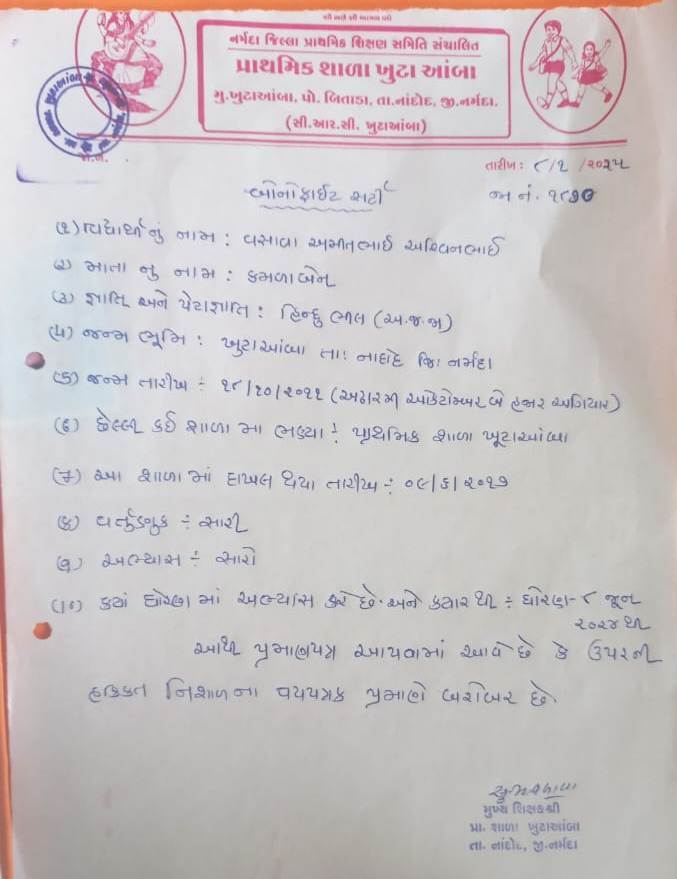 નર્મદા જિલ્લા પ્રાથમિક શિક્ષણ સમિતિ સંચાલિત
પ્રાથમિક શાળા ખુટા આંબા
મુ.ખુટાઆંબા, પો. બિતાડા, તા.નાંદોદ, જી.નર્મદા.
(સી.આર.સી. ખુટાઆંબા)
તારીખ: ૮/૨/૨૦૨૫
બોનોફાઈટ સર્ટી
જા નં. ૧૮૭૦
(૧) વિદ્યાર્થી નું નામ : વસાવા અમીતભાઈ અશ્વિનભાઈ
(૨) માતા નુ નામ : કમળાબેન
(૩) જ્ઞાતિ અને પેટાજ્ઞાતિ : હિન્દુ ભીલ (અ.જ.જા)
(૪) જન્મ ભૂમિ : ખુટાઆંબા તા: નાંદોદ જિ: નર્મદા
(૫) જન્મ તારીખ ÷ ૧૮/૧૦/૨૦૧૧ (અઢારમી ઓક્ટોમ્બર બે હજાર અગિયાર)
(૬) છેલ્લી કઈ શાળા મા ભણ્યા ÷ પ્રાથમિક શાળા ખૂટાઆંબા
(૭) આ શાળા માં દાખલ થયા તારીખ ÷ ૦૯/૬/૨૦૧૭
(૮) વર્તુણુક ÷ સારી
(૯) અભ્યાસ ÷ સારો
(૧૦) કયાં ધોરણ માં અભ્યાસ કરે છે. અને ક્યાર થી ÷ ધોરણ-૮ જૂન
૨૦૨૪ થી
આથી પ્રમાણપત્ર આપવામાં આવે છે કે ઉપરની
હકિકત નિશાળ ના વયપત્રક પ્રમાણે બરોબર છે.
મુખ્ય શિક્ષકશ્રી
પ્રા. શાળા ખુટાઆંબા
તા. નાંદોદ, જી.નર્મદા